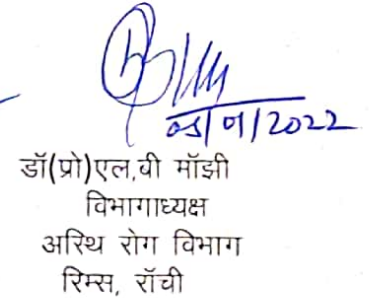 05/01/2022
डॉ(प्रो)एल.वी मॉझी
विभागाध्यक्ष
अस्थि रोग विभाग
रिम्स, रॉची